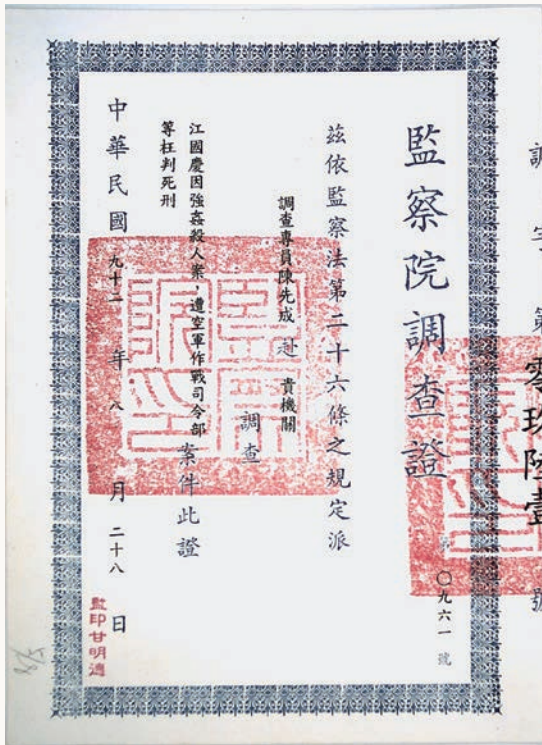 調字第零玖陸壹號
監察院調查證
〇九六一號
茲依監察法第二十六條之規定派
調查專員陳先成赴 貴機關
調查
江國慶因強姦殺人案,遭空軍作戰司令部
等枉判死刑
案件此證
中華民國九十二年八月二十八日
監印甘明德